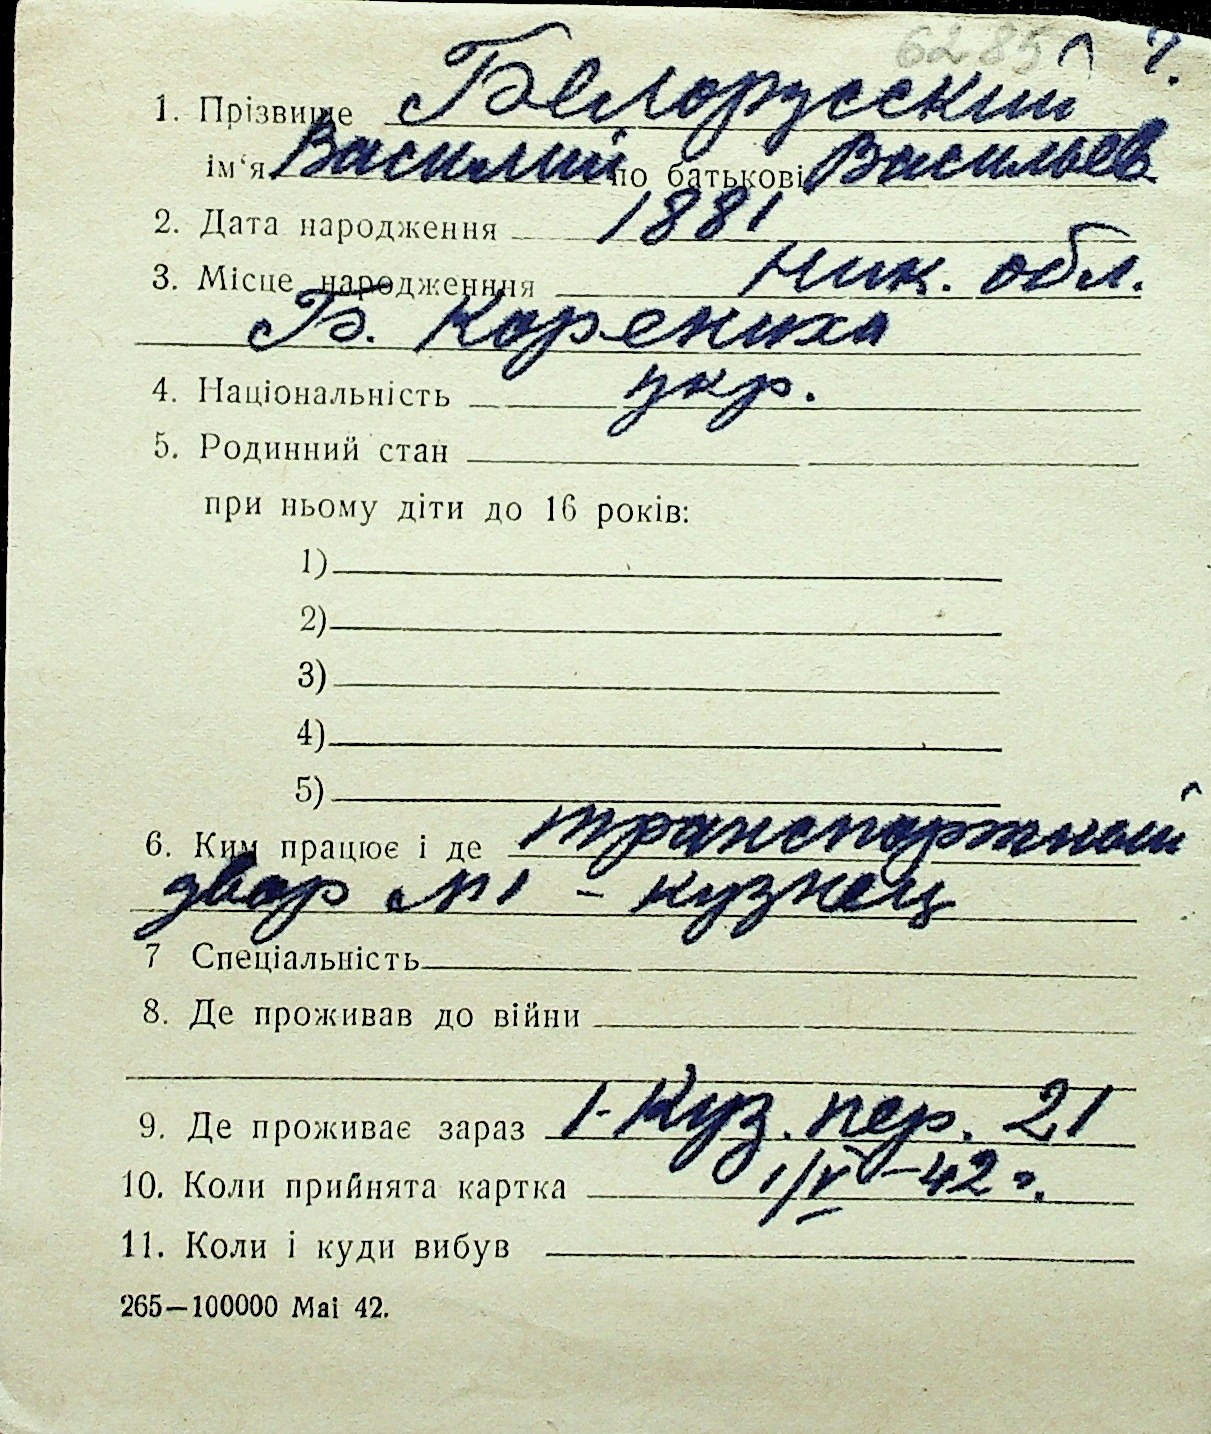 6285 ч.
1. Прізвище Белорусский
ім‘я Василий по батькові Васильев
2. Дата народження 1881
3. Місце народженння Ник. обл.
Б. Корениха
4. Національність укр.
5. Родинний стан
при ньому діти до 16 років:
1)
2)
3)
4)
5)
6. Ким працює і де транспортный
двор №1 - кузнец
7 Спеціальність
8. Де проживав до війни
9. Де проживає зараз 1-Куз. пер. 21
10. Коли прийнята картка 1/V-42 г.
11. Коли і куди вибув
265—100000 Маі 42.